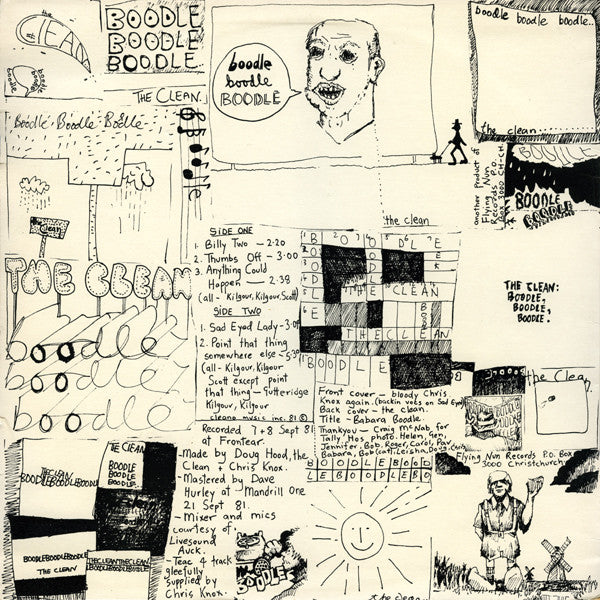 the
CLEAN
boodle
boodle
boodle
BOODLE
BOODLE
BOODLE
THE CLEAN.
Boodle · Boodle Bodle
BOODLE
boodle
boodle
BOODLE
boodle boodle boodle..
the clean
another product of
Flying Nun
Records P.O.
Box 3000 CH-CH.
BOODLE
BOODLE
the clean
the
Clean
THE CLEAN
boodle
boodle
boodle
SIDE ONE
1. Billy Two — 2·20
2. Thumbs Off — 3·00
3. Anything Could
Happen — 2·38
(all - Kilgour, Kilgour, Scott)
SIDE TWO
1. Sad Eyed Lady - 3·09
2. Point that thing
somewhere else - 5·3
(all - Kilgour, Kilgour
Scott except point
that thing - Gutteridge
Kilgour, Kilgour
cleano music inc. 81 ©
BOODLE
THE CLEAN
THE CLEAN
BOODLE
THE CLEAN:
BOODLE,
BOODLE,
BOODLE.
Front cover - bloody Chris
Knox again. (backin vots on Sad Eyed)
Back cover - the clean.
Title - Babara Boodle.
Thankyou - Craig McNab, for
Tally Ho's photo. Helen, Gen,
Jennifer, Bob, Roger, Carol, Pav,
Babara, Bob (cat), Leisha, Doug
BOODLEBOODLE
LEBOODLEBOODLEBO
the Clean
Flying Nun Records P.O. Box
3000 Christchurch
Recorded 7+8 Sept 81
at Frontear.
-Made by Doug Hood, the
Clean + Chris Knox.
-Mastered by Dave
Hurley at Mandrill One
21 Sept 81.
-Mixer and mics
courtesy of
Livesound
Auck.
-Teac 4 track
gleefully
supplied by
Chris Knox.
THE CLEAN
BOODLEBOODLEBOODLE
THE CLEAN
BOODLE
BOODLE
BOODLE
BOODLEBOODLEBOODLE
THE CLEAN
THECLEANTHECLEAN
BOODLEBOODLEBOODLE
BOODLE
the clean